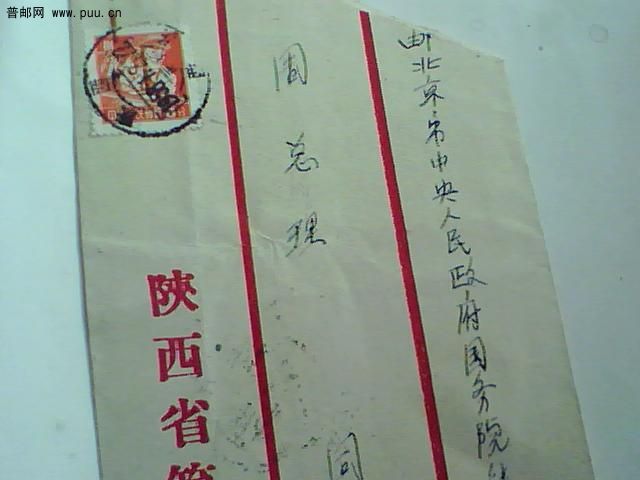 普邮网
www.puu.cn
邮北京市中央人民政府国务院
周总理
同
陕西省